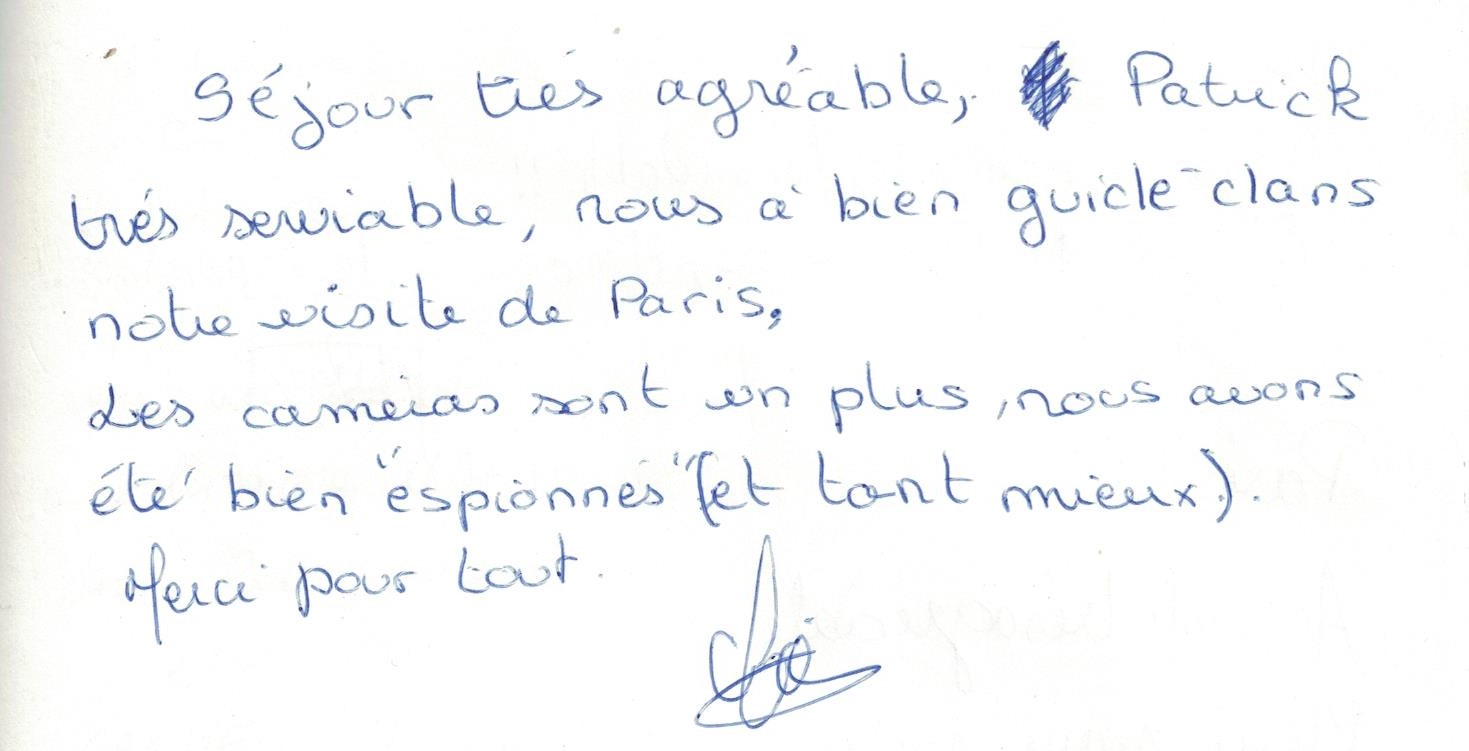 Séjour très agréable, Patrick
trés serviable, nous a bien guidé dans
notre visite de Paris,
Les cameras sont un plus, nous avons
été bien "espionnés" (et tant mieux).
Merci pour tout.